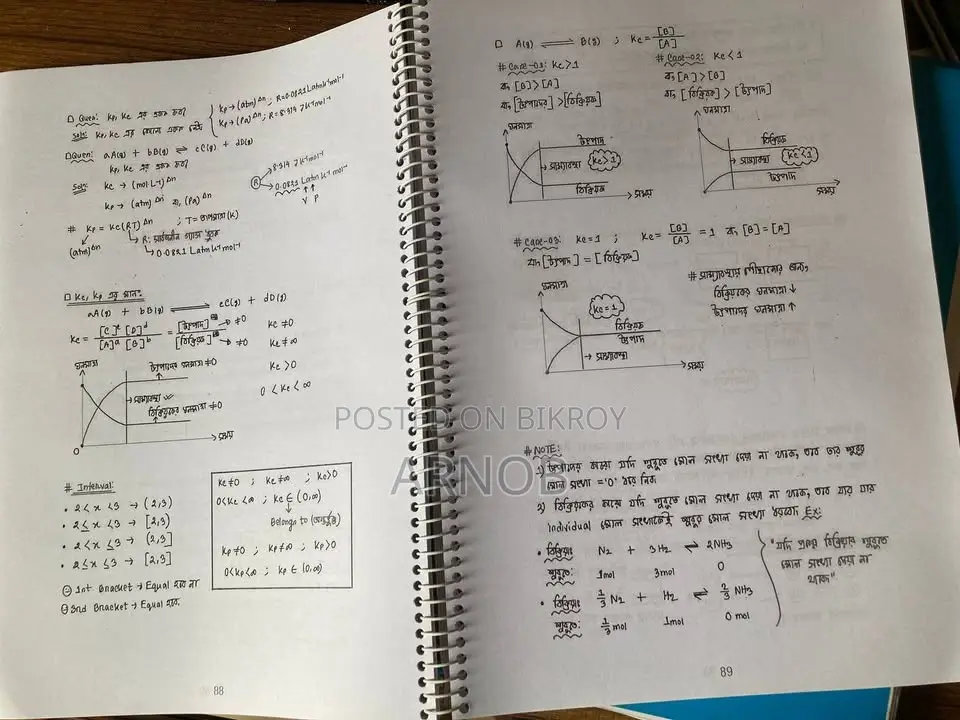 □ Ques: Kp, Kc এর একক কী?
Kp → (atm)^Δn ; R=0.0821 Latmk⁻¹mol⁻¹
Kp → (Pa)^Δn ; R=8.314 Jk⁻¹mol⁻¹
Soln: Kp, Kc এর কোনো একক নেই
□ Ques: aA(g) + bB(g) ⇌ cC(g) + dD(g)
Kp, Kc এর একক কী?
Soln: Kc → (mol L⁻¹)^Δn
Kp → (atm)^Δn বা, (Pa)^Δn
R → 8.314 Jk⁻¹mol⁻¹
→ 0.0821 Latmk⁻¹mol⁻¹
↑ ↑
V P
# Kp = Kc(RT)^Δn ; T= তাপমাত্রা (K)
(atm)^Δn
→ R: সার্বজনীন গ্যাস ধ্রুবক
→ 0.0821 Latmk⁻¹mol⁻¹
□ Kc, Kp এর মান:
aA(g) + bB(g) ⇌ cC(g) + dD(g)
Kc = [C]^c [D]^d / [A]^a [B]^b = [উৎপাদ] → ≠0 / [বিক্রিয়ক] → ≠0
Kc ≠0
Kc ≠ ∞
Kc >0
0 < Kc < ∞
ঘনমাত্রা
উৎপাদের ঘনমাত্রা ≠0
→ সাম্যাবস্থা
বিক্রিয়কের ঘনমাত্রা ≠0
0
→ সময়
# Interval:
• 2 < x < 3 → (2,3)
• 2 ≤ x < 3 → [2,3)
• 2 < x ≤ 3 → (2,3]
• 2 ≤ x ≤ 3 → [2,3]
1st Bracket → Equal হবে না
3rd Bracket → Equal হবে
Kc≠0 ; Kc≠∞ ; Kc>0
0<Kc<∞ ; Kc ∈ (0,∞)
Belongs to (অন্তর্ভুক্ত)
Kp≠0 ; Kp≠∞ ; Kp>0
0<Kp<∞ ; Kp ∈ (0,∞)
88
□ A(g) ⇌ B(g) ; Kc = [B]/[A]
# Case-01: Kc>1
বা [B]>[A]
বা [উৎপাদ]>[বিক্রিয়ক]
ঘনমাত্রা
উৎপাদ
→ সাম্যাবস্থা Kc>1
বিক্রিয়ক
→ সময়
# Case-02: Kc<1
বা [A]>[B]
বা [বিক্রিয়ক] > [উৎপাদ]
ঘনমাত্রা
বিক্রিয়ক
→ সাম্যাবস্থা Kc<1
উৎপাদ
সময়
# Case-03: Kc=1 ; Kc= [B]/[A] = 1 বা [B]=[A]
বা [উৎপাদ] = [বিক্রিয়ক]
ঘনমাত্রা
Kc=1
বিক্রিয়ক
উৎপাদ
→ সাম্যাবস্থা
→ সময়
# সাম্যাবস্থায় পৌঁছানোর জন্য,
বিক্রিয়কের ঘনমাত্রা ↓
উৎপাদের ঘনমাত্রা ↑
# NOTE:
1) উৎপাদের জন্য যদি শুরুতে মোল সংখ্যা দেয়া না থাকে, তবে তার শুরুর
মোল সংখ্যা ='0' ধরে নিব
2) বিক্রিয়কের জন্য যদি শুরুতে মোল সংখ্যা দেয়া না থাকে, তবে যার যার
Individual মোল সংখ্যাকেই শুরুর মোল সংখ্যা ধরবো। Ex:
• বিক্রিয়া: N₂ + 3H₂ ⇌ 2NH₃
শুরুতে: 1mol 3mol 0
• বিক্রিয়া: 1/3 N₂ + H₂ ⇌ 2/3 NH₃
শুরুতে: 1/3 mol 1mol 0 mol
"যদি প্রশ্নে বিক্রিয়ার শুরুতে
মোল সংখ্যা দেয়া না
থাকে"
89
POSTED ON BIKROY
ARNOB